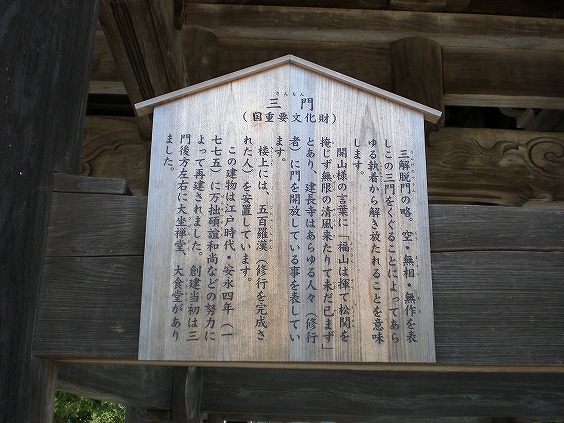 さんもん
三門
(国重要文化財)
三解脱門の略。空・無相・無作を表
しこの三門をくぐることによってあら
ゆる執着から解き放たれることを意味
します。
開山様の言葉に「福山は揮て松関を
掩じず無限の清風来たりて未だ已まず」
とあり、建長寺はあらゆる人々(修行
者)に門を開放している事を表してい
ます。
楼上には、五百羅漢(修行を完成さ
れた人)を安置しています。
この建物は江戸時代・安永四年(一
七七五)に万拙碩誼和尚などの努力に
よって再建されました。創建当初は三
門後方左右に大坐禅堂、大食堂があり
ました。